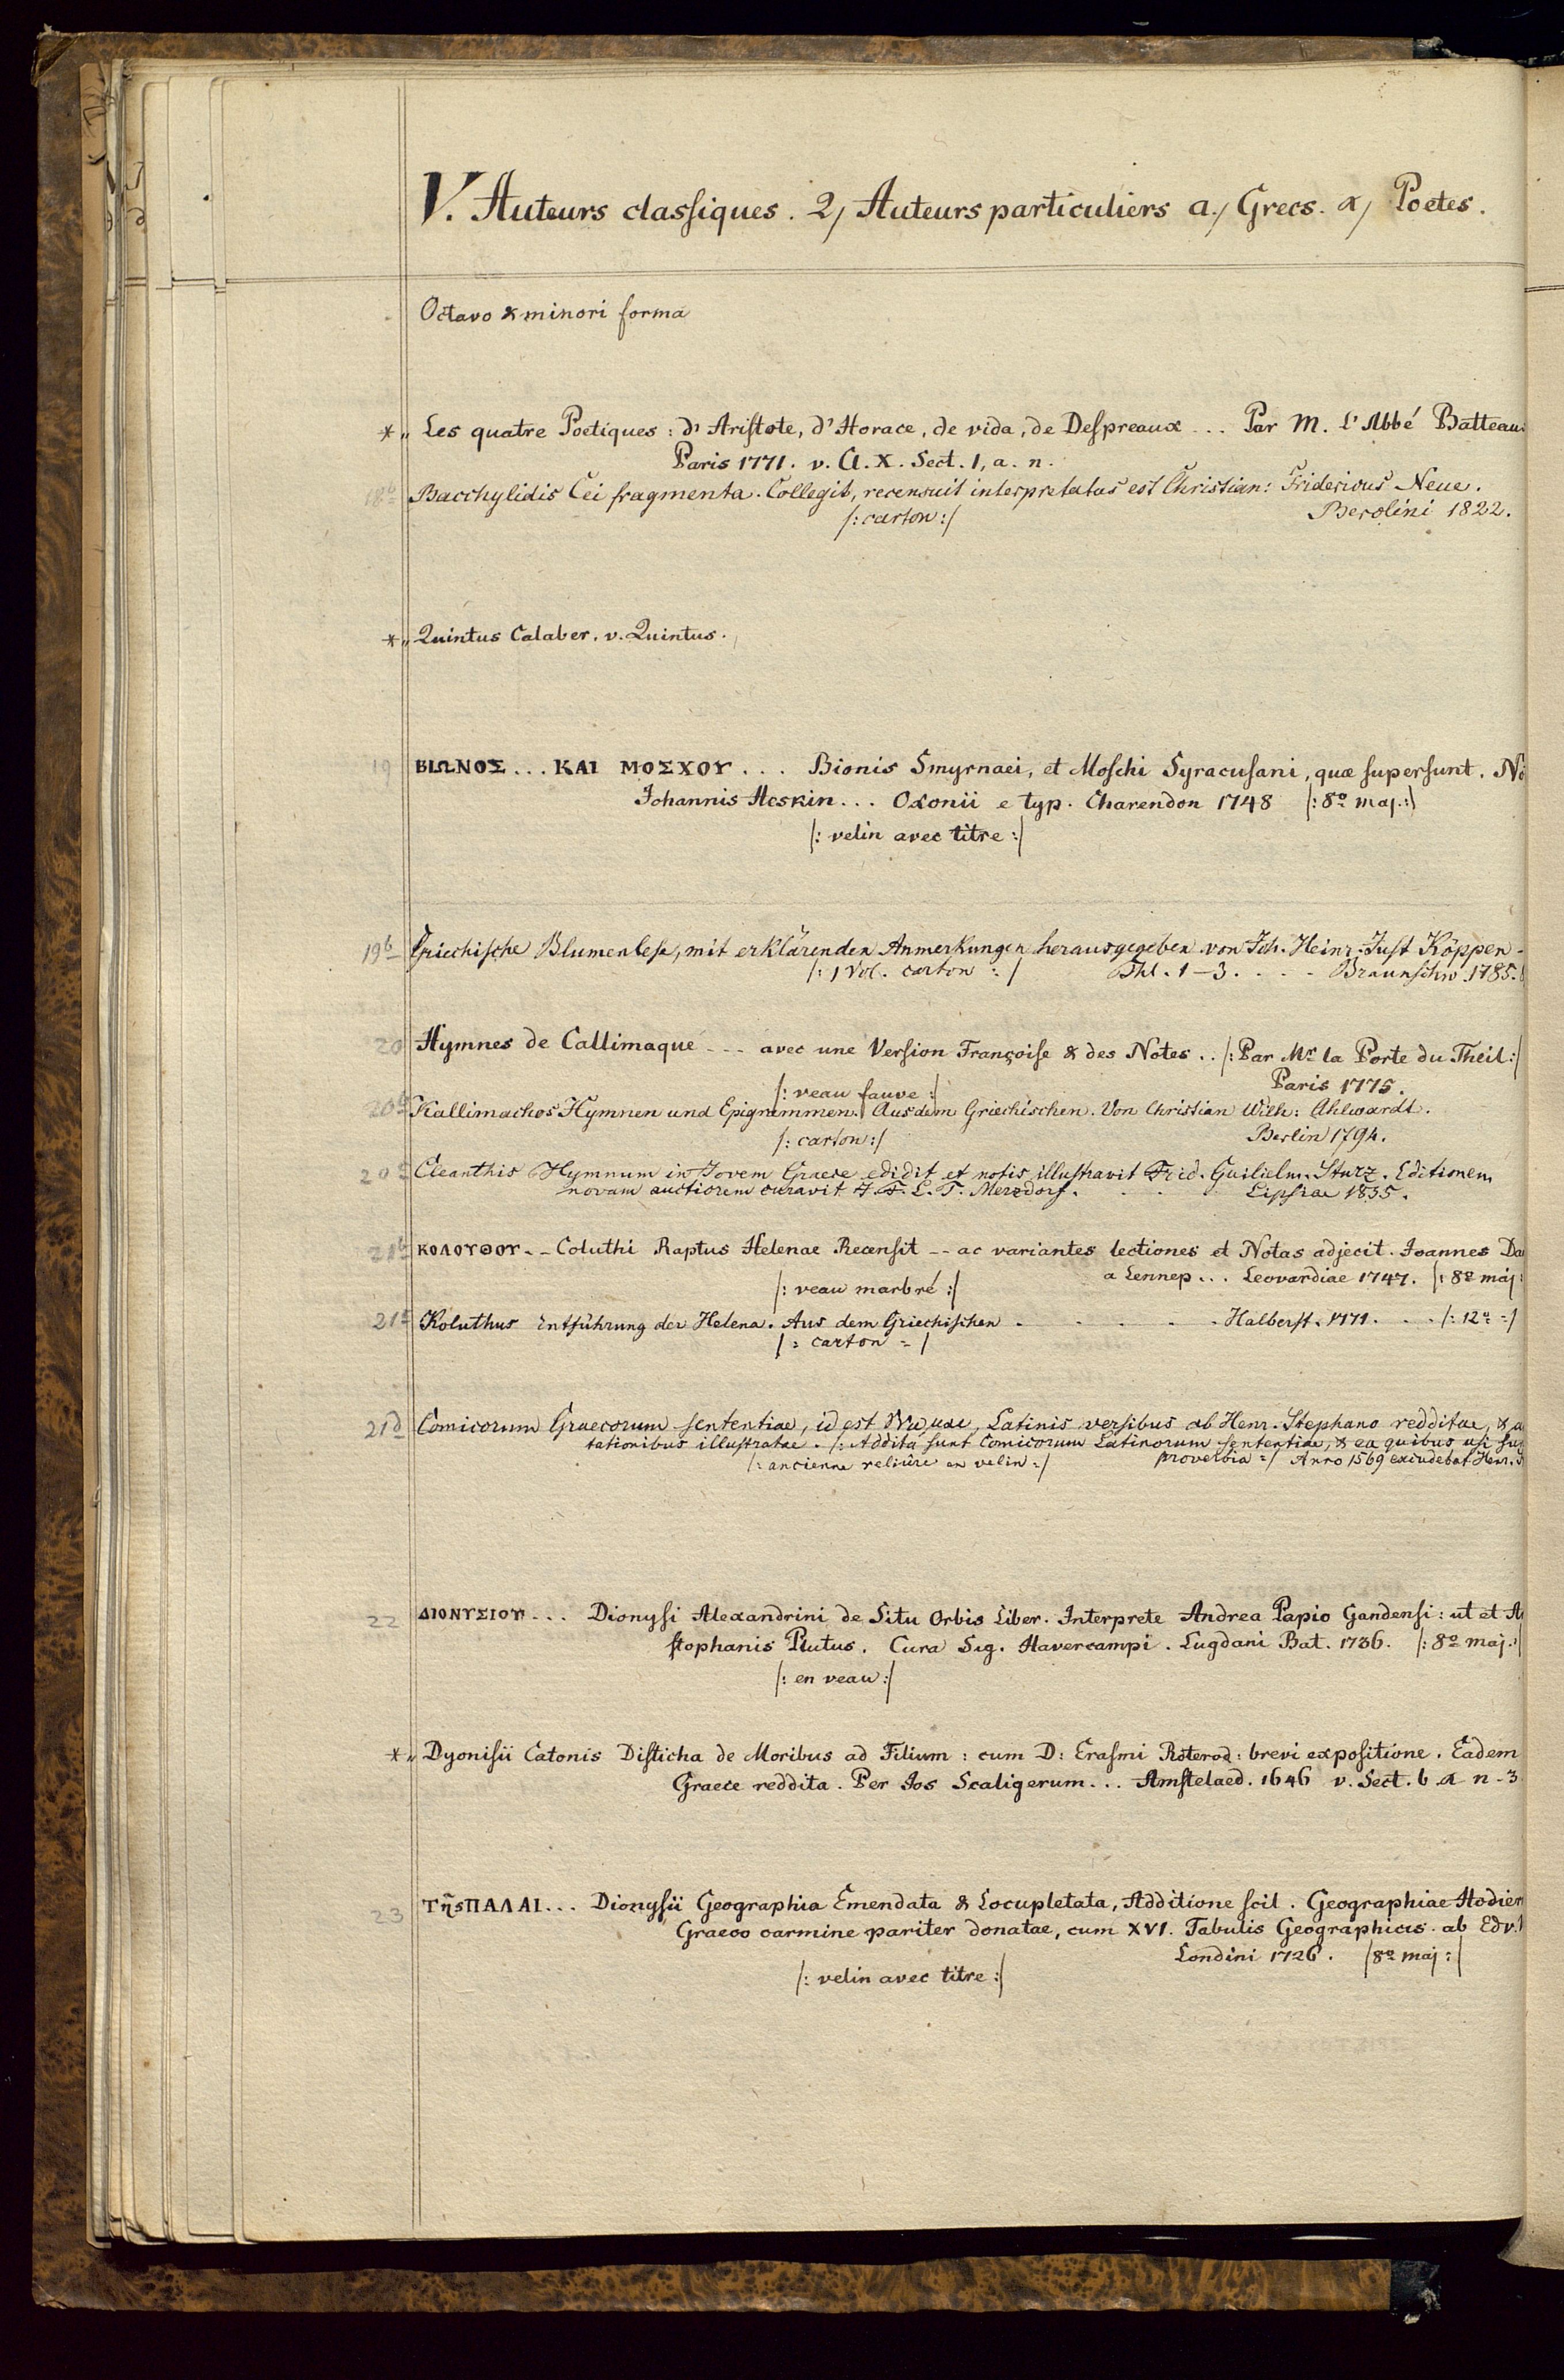 V. Auteurs classiques. 2, Auteurs particuliers a., Grecs. α, Poetes.
Octavo & minori forma
*„ Les quatre Poetiques: d'Aristote, d'Horace, de vida, de Despreaux ... Par M. L'Abbé Batteau
Paris 1771. v. Cl. X. Sect. 1, a. n.
18b Bacchylidis Cei fragmenta. Collegit, recensuit interpretatus est Christian: Fridericus Neue.
/: carton :/ Berolini 1822.
*„ Quintus Calaber. v. Quintus.
19 ΒΙΩΝΟΣ ... ΚΑΙ ΜΟΣΧΟΥ ... Bionis Smyrnaei, et Moschi Syracusani, quæ supersunt.
Johannis Heskin ... Oxonii e typ. Charendon 1748 /: 8º maj. :/
/: velin avec titre :/
19b Griechische Blumenlese, mit erklärenden Anmerkungen herausgegeben von Joh. Heinr. Just Köppen -
/: 1 Vol. carton :/ Thl. 1-3. . . . Braunschw. 1785.
20 Hymnes de Callimaque --- avec une Version Françoise & des Notes .. /: Par Mr la Porte du Theil :/
/: veau fauve :/ Paris 1775.
20b Kallimachos Hymnen und Epigrammen. Aus dem Griechischen. Von Christian Wilh: Ahlwardt.
/: carton :/ Berlin 1794.
20c Cleanthis Hymnum in Jovem Graece edidit et notis illustravit Frid. Guilielm. Sturz. Editionem
novam auctiorem curavit J. F. L. T. Merzdorf. . . . Lipsiae 1835.
21b ΚΟΛΟΥΘΟΥ -- Coluthi Raptus Helenae Recensit -- ac variantes lectiones et Notas adjecit. Joannes Da
a Lennep ... Leovardiae 1747. /: 8º maj:
/: veau marbré :/
21c Koluthus Entführung der Helena. Aus dem Griechischen . . . . . Halberst. 1771. . . /: 12º :/
/: carton :/
21d Comicorum Graecorum sententiae, id est Latinis versibus ab Henr. Stephano redditae, &
tationibus illustratae. /: Addita sunt Comicorum Latinorum sententiae, & ea quibus usi
/: ancienne reliûre en velin :/ proverbia :/ Anno 1569 excudebat Henr.
22 ΔΙΟΝΥΣΙΟΥ ... Dionysi Alexandrini de Situ Orbis Liber. Interprete Andrea Papio Gandensi: ut et
stophanis Plutus. Cura Sig. Havercampi. Lugdani Bat. 1736. /: 8º maj. :/
/: en veau :/
*„ Dyonisii Catonis Disticha de Moribus ad Filium: cum D: Erasmi Roterod: brevi expositione. Eadem
Graece reddita. Per Jos Scaligerum ... Amstelaed. 1646 v. Sect. b α n. 3
23 ΤῆςΠΑΛΑΙ ... Dionysii Geographia Emendata & Locupletata, Additione scil. Geographiae Hodier
Graeco carmine pariter donatae, cum XVI. Tabulis Geographicis. ab Edv.
Londini 1726. /8º maj :/
/: velin avec titre :/